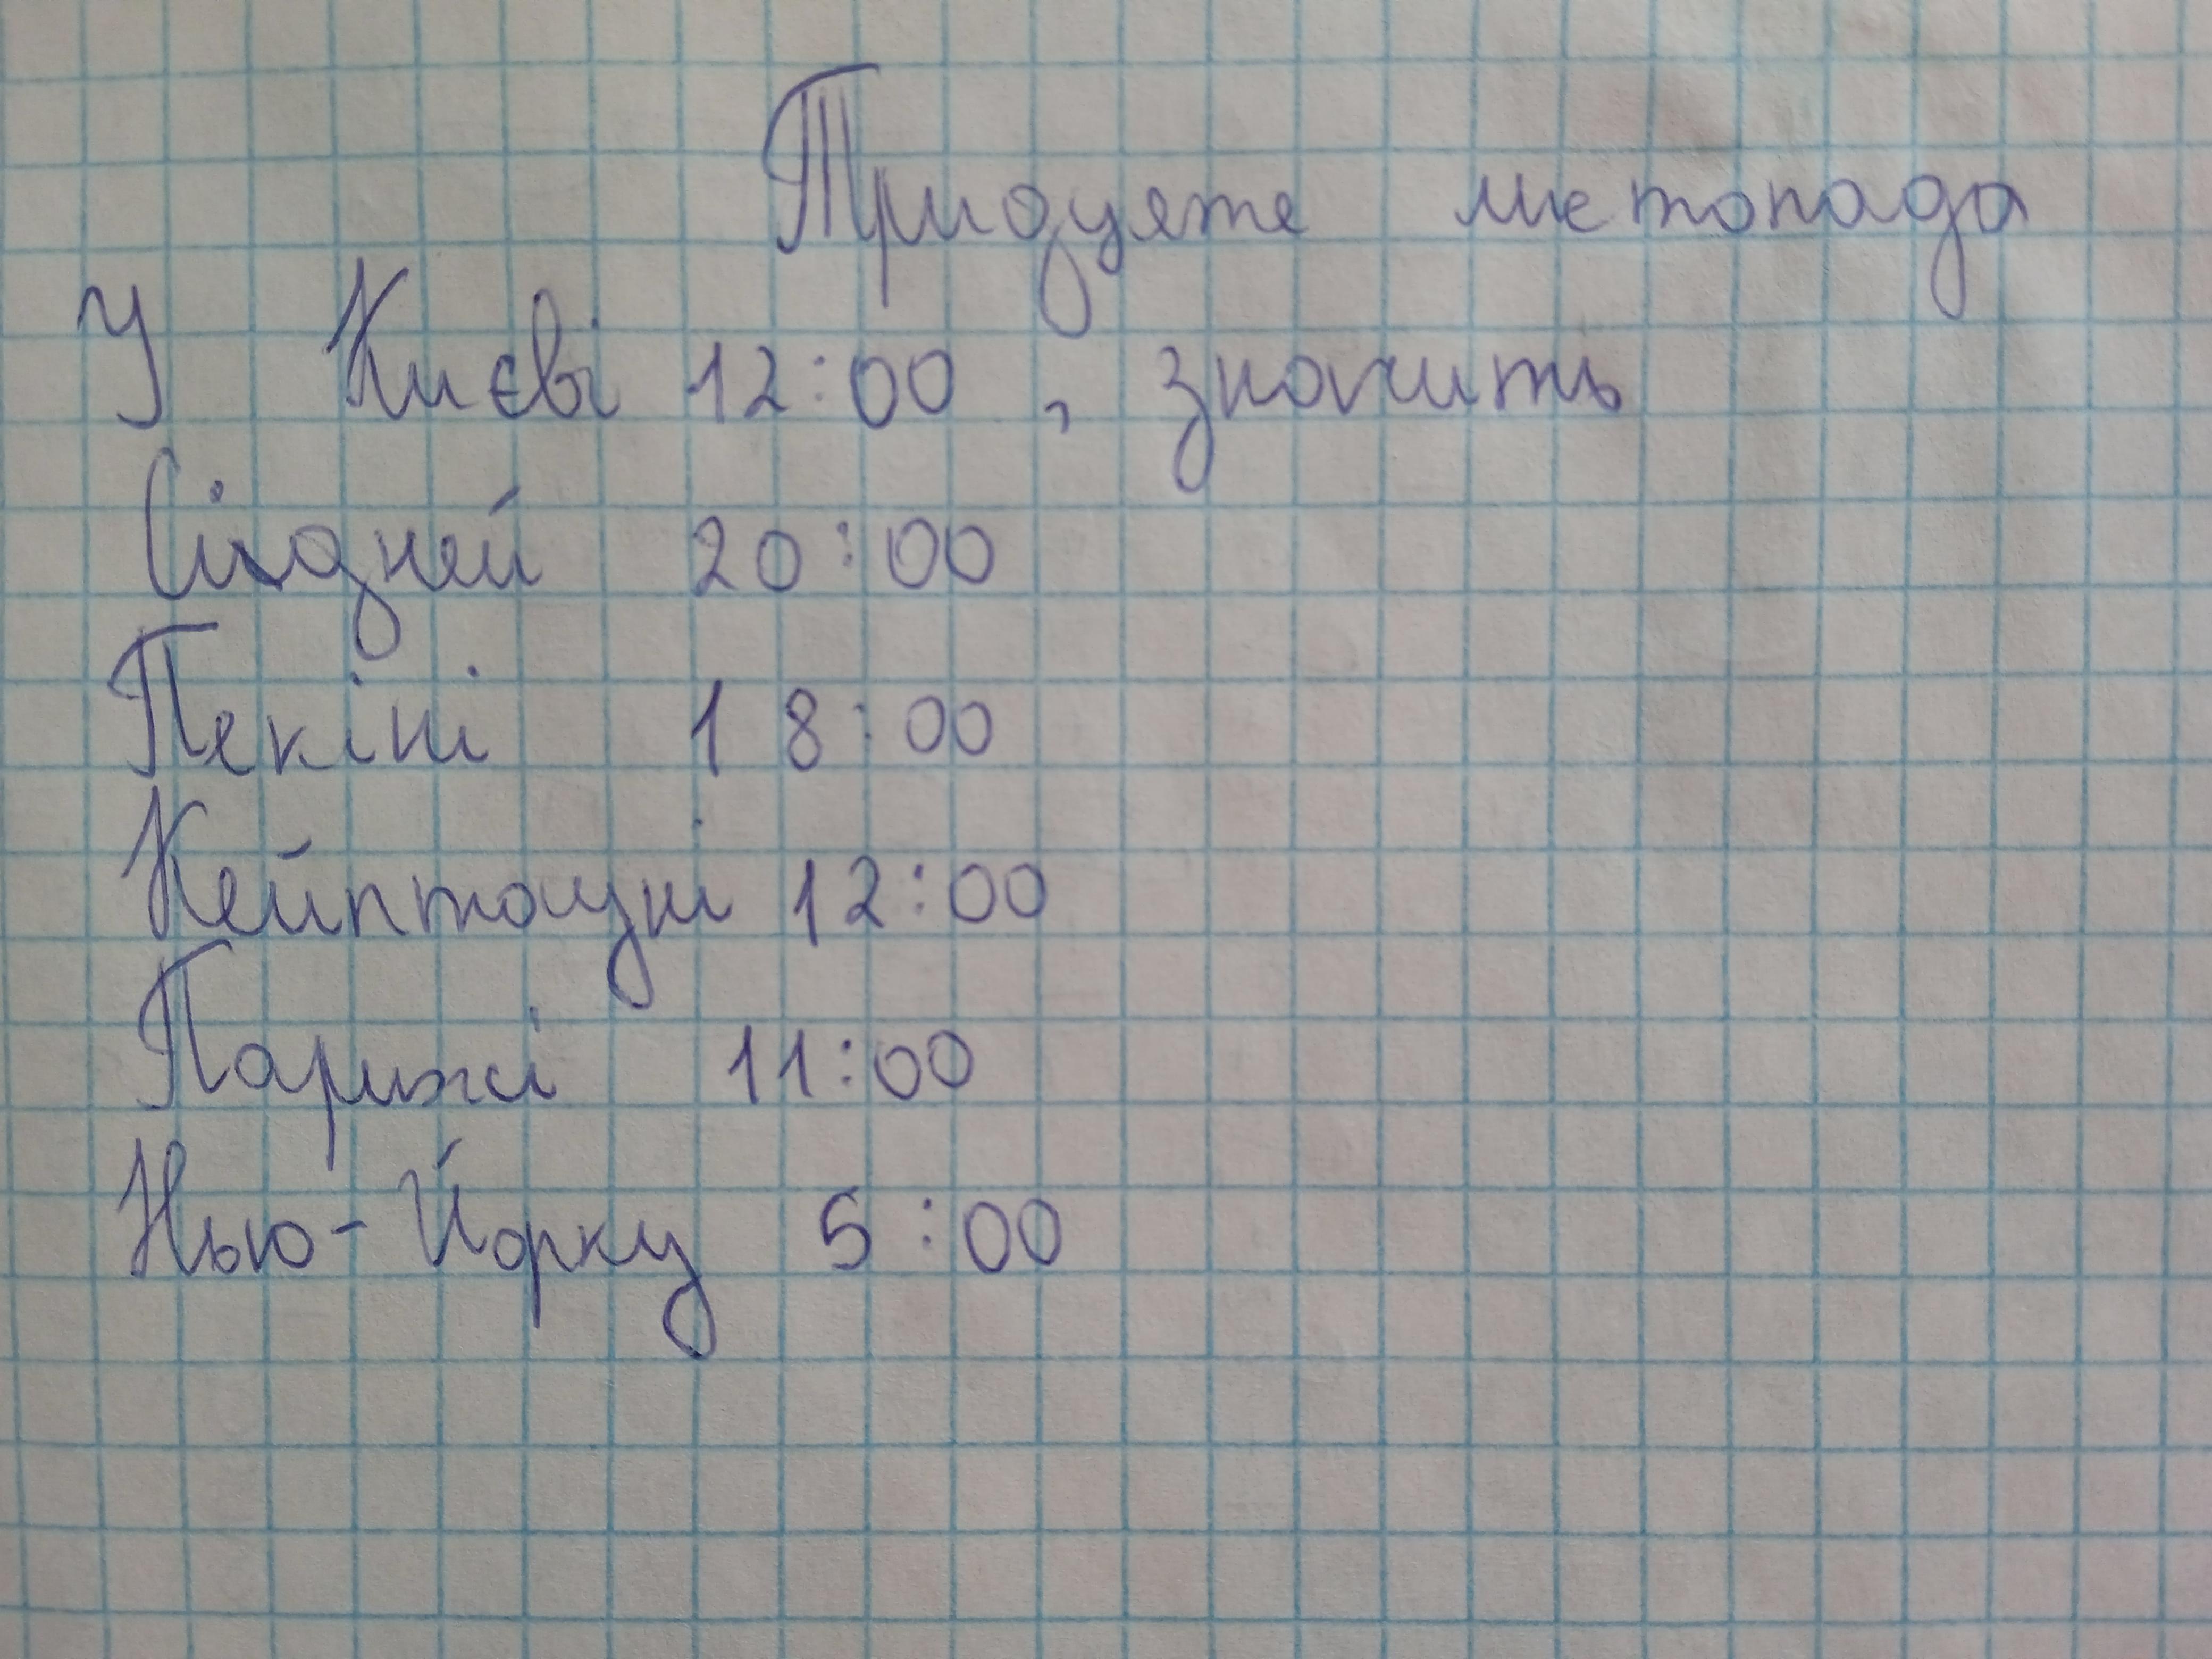 Тридцяте листопада
У Києві 12:00, значить
Сідней 20:00
Пекіні 18:00
Кейптоуні 12:00
Парижі 11:00
Нью-Йорку 5:00